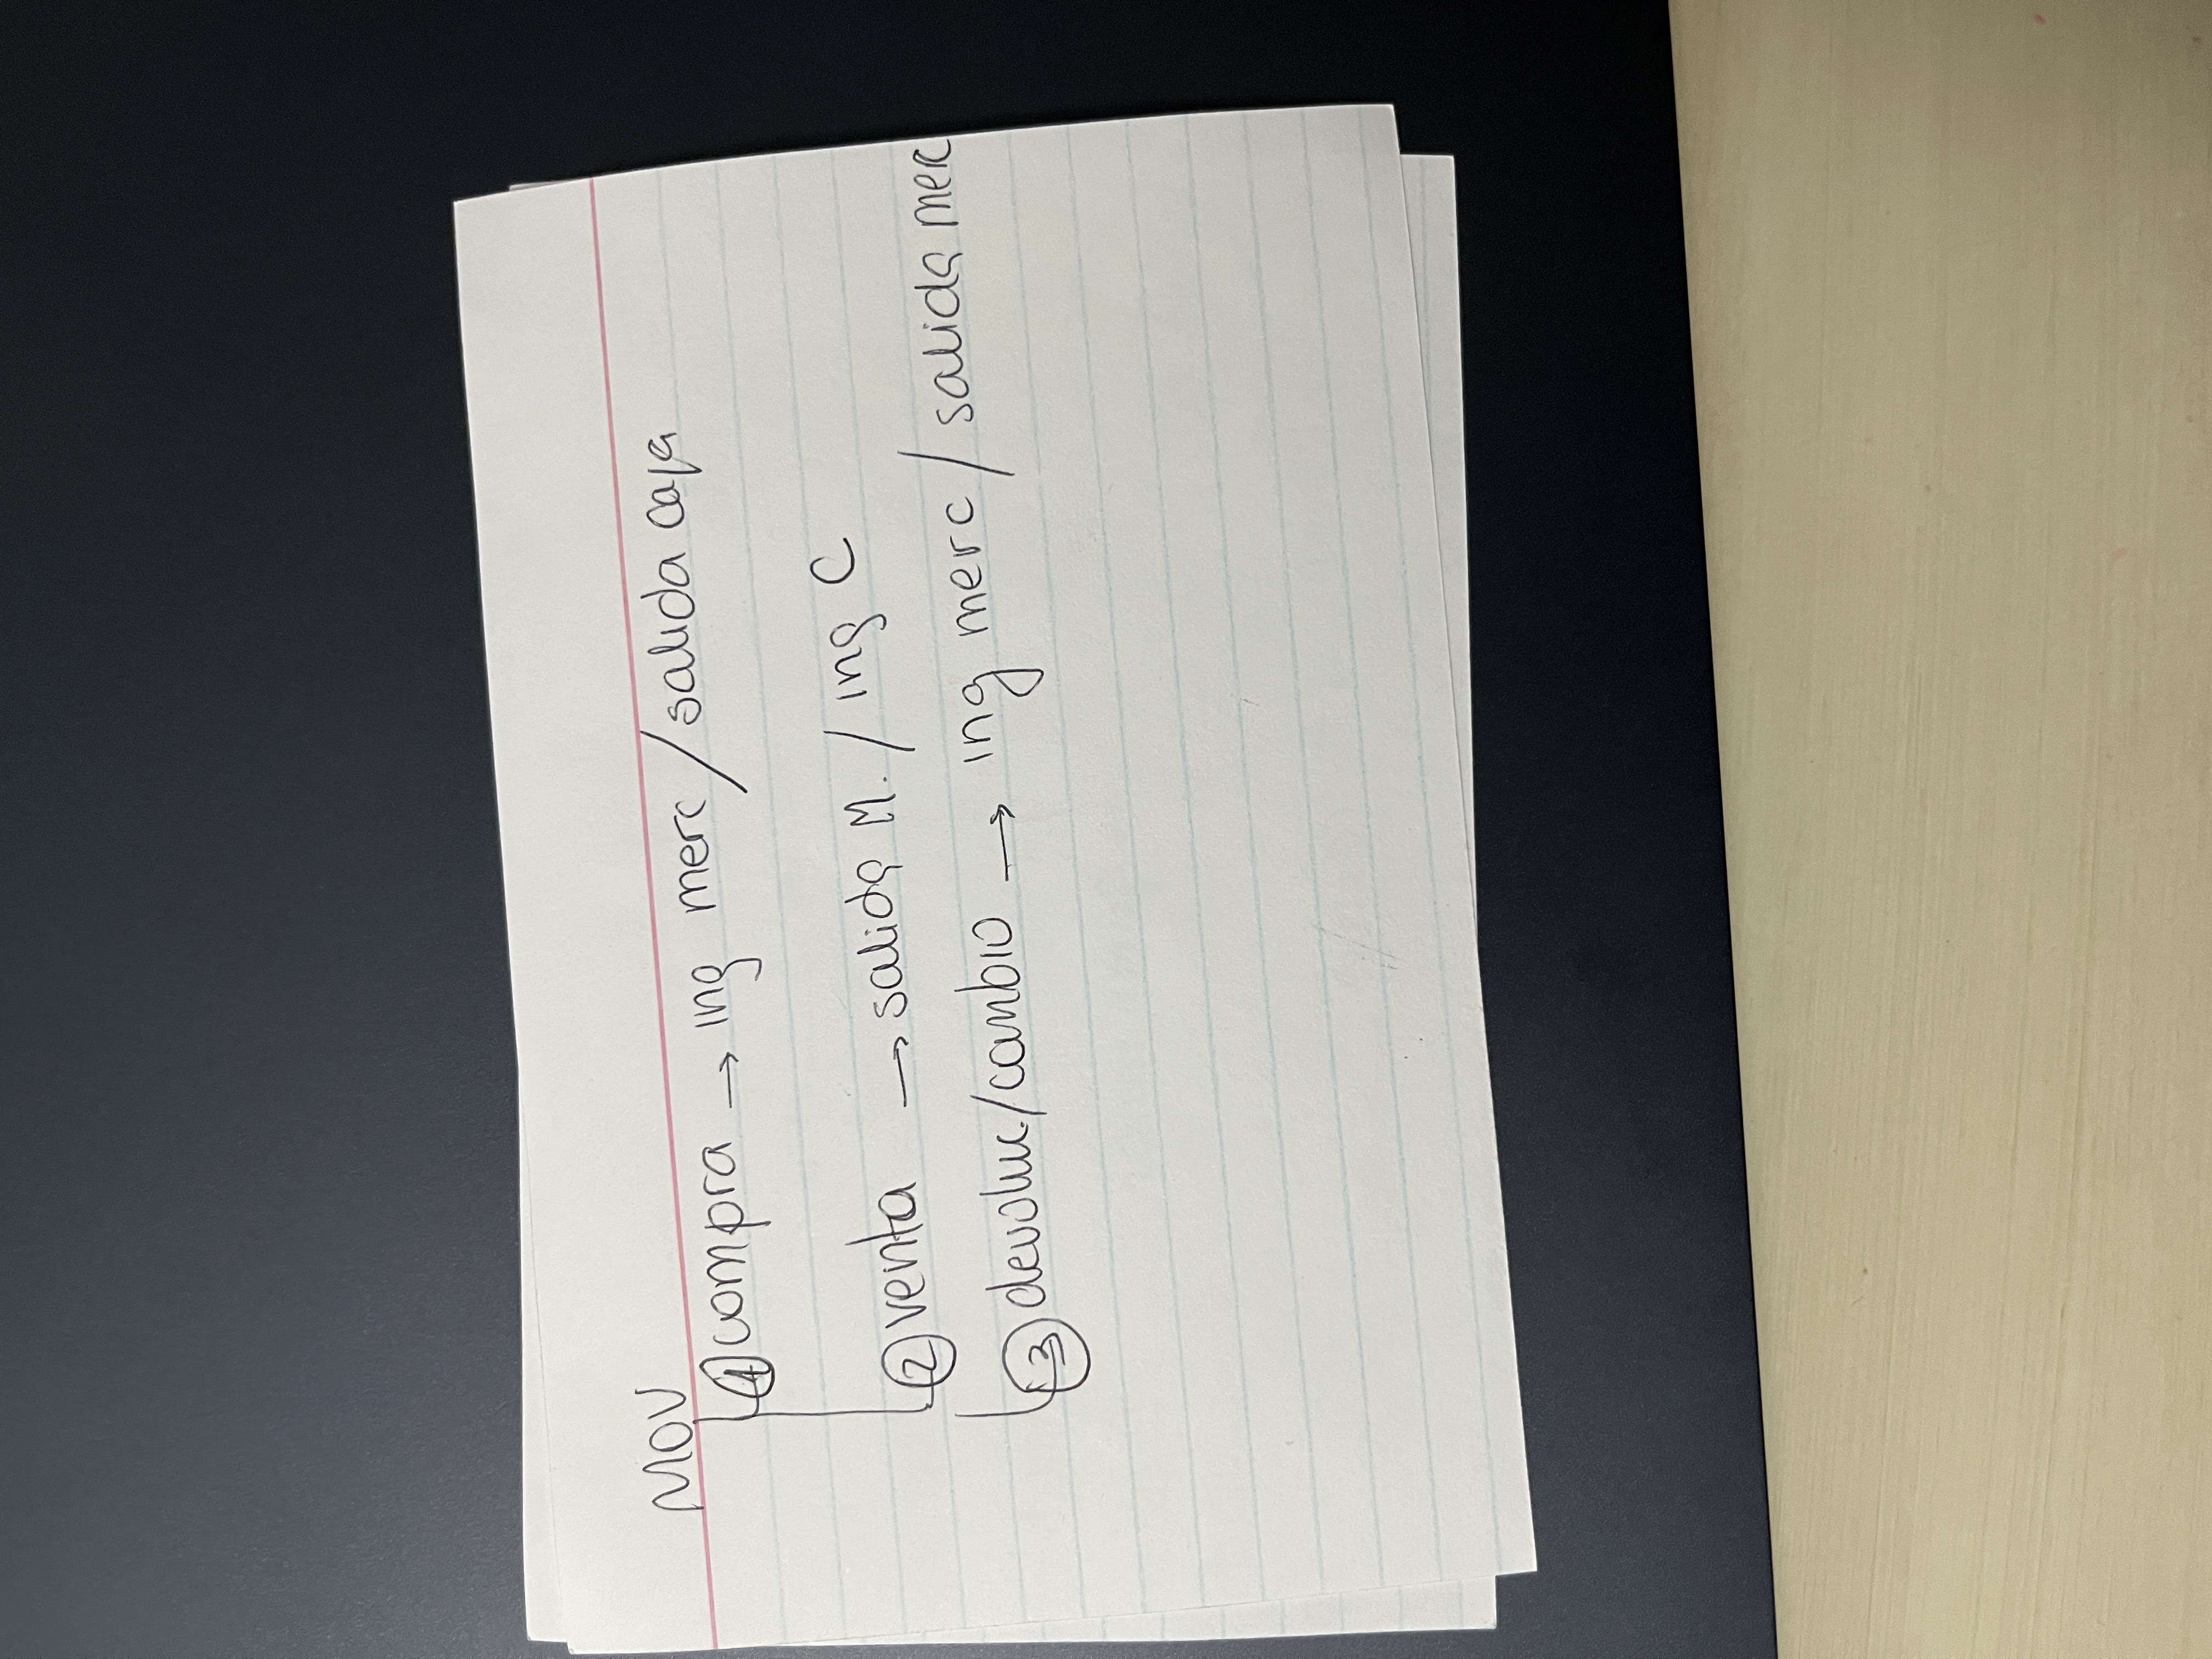 MOV
1 compra → ing merc / salida caja
2 venta → salida M. / ing C
3 devoluc./cambio → ing merc / salida merc